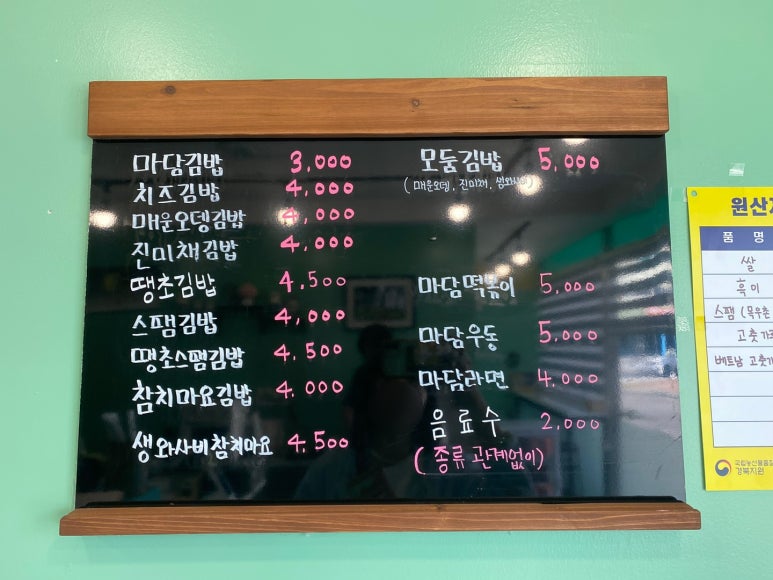 마담김밥 3,000
치즈김밥 4,000
매운오뎅김밥 4,000
진미채김밥 4,000
땡초김밥 4.500
스팸김밥 4,000
땡초스팸김밥 4.500
참치마요김밥 4.000
생와사비참치마요 4.500
모둠김밥 5,000
(매운오뎅, 진미채, 생와사비)
마담떡볶이 5,000
마담우동 5,000
마담라면 4,000
음료수 2,000
(종류 관계없이)
원산지
품 명
쌀
흑미
스팸 (목우촌
고춧가루
베트남 고춧가
국립농산물품질
경북지원